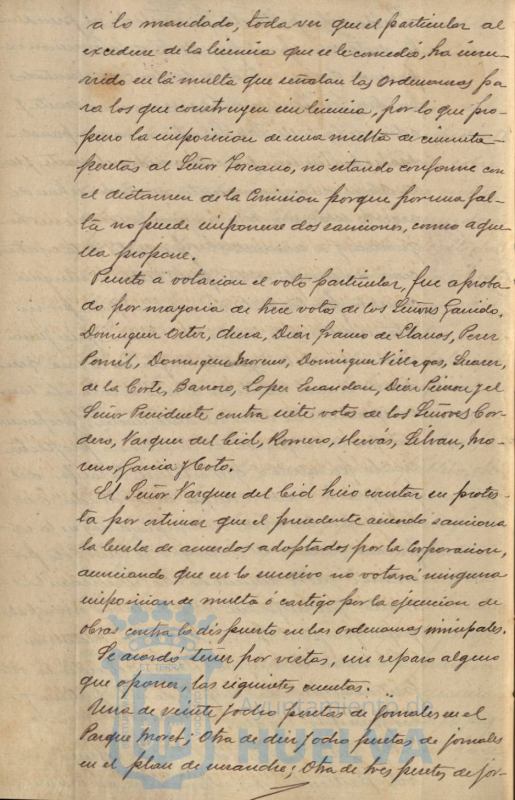 a lo mandado, toda vez que el particular al
excederse de la licencia que se le concedió, ha incu-
rrido en la multa que señalan las Ordenanzas pa
ra los que construyen sin licencia, por lo que pro-
puso la imposicion de una multa de cincuenta
pesetas al Señor Toscano, no estando conforme con
el dictamen de la Comision porque por una fal-
ta no puede imponerse dos sanciones, como aque
lla propone.
Puesto á votacion el voto particular, fue aproba
do por mayoria de trece votos de los Señores Garrido,
Dominguez Ortiz, Checa, Diaz Franco de Llanos, Perez
Dominguez Moreno, Dominguez Villegas, Suarez,
de la Corte, Banozo, Lopez Diaz y el
Señor Presidente contra siete votos de los Señores Cor-
dero, Vazquez del Cid, Romero, Hervás, Gilvan, Mo-
reno, Garcia y Coto.
El Señor Vazquez del Cid hizo constar su protes-
ta por estimar que el precedente acuerdo sanciona
la burla de acuerdos adoptados por la Corporacion,
anunciando que en lo sucesivo no votará ninguna
imposicion de multa ó castigo por la ejecucion de
obras contra lo dispuesto en las Ordenanzas municipales.
Se acordó tener por vistas, sin reparo alguno
que oponer, las siguientes cuentas.
Una de veinte y ocho pesetas de jornales en el
Parque Moret; Otra de diez y ocho pesetas de jornales
en el plan de ensanche; Otra de tres pesetas de jor-
Ayuntamiento de
HUELVA